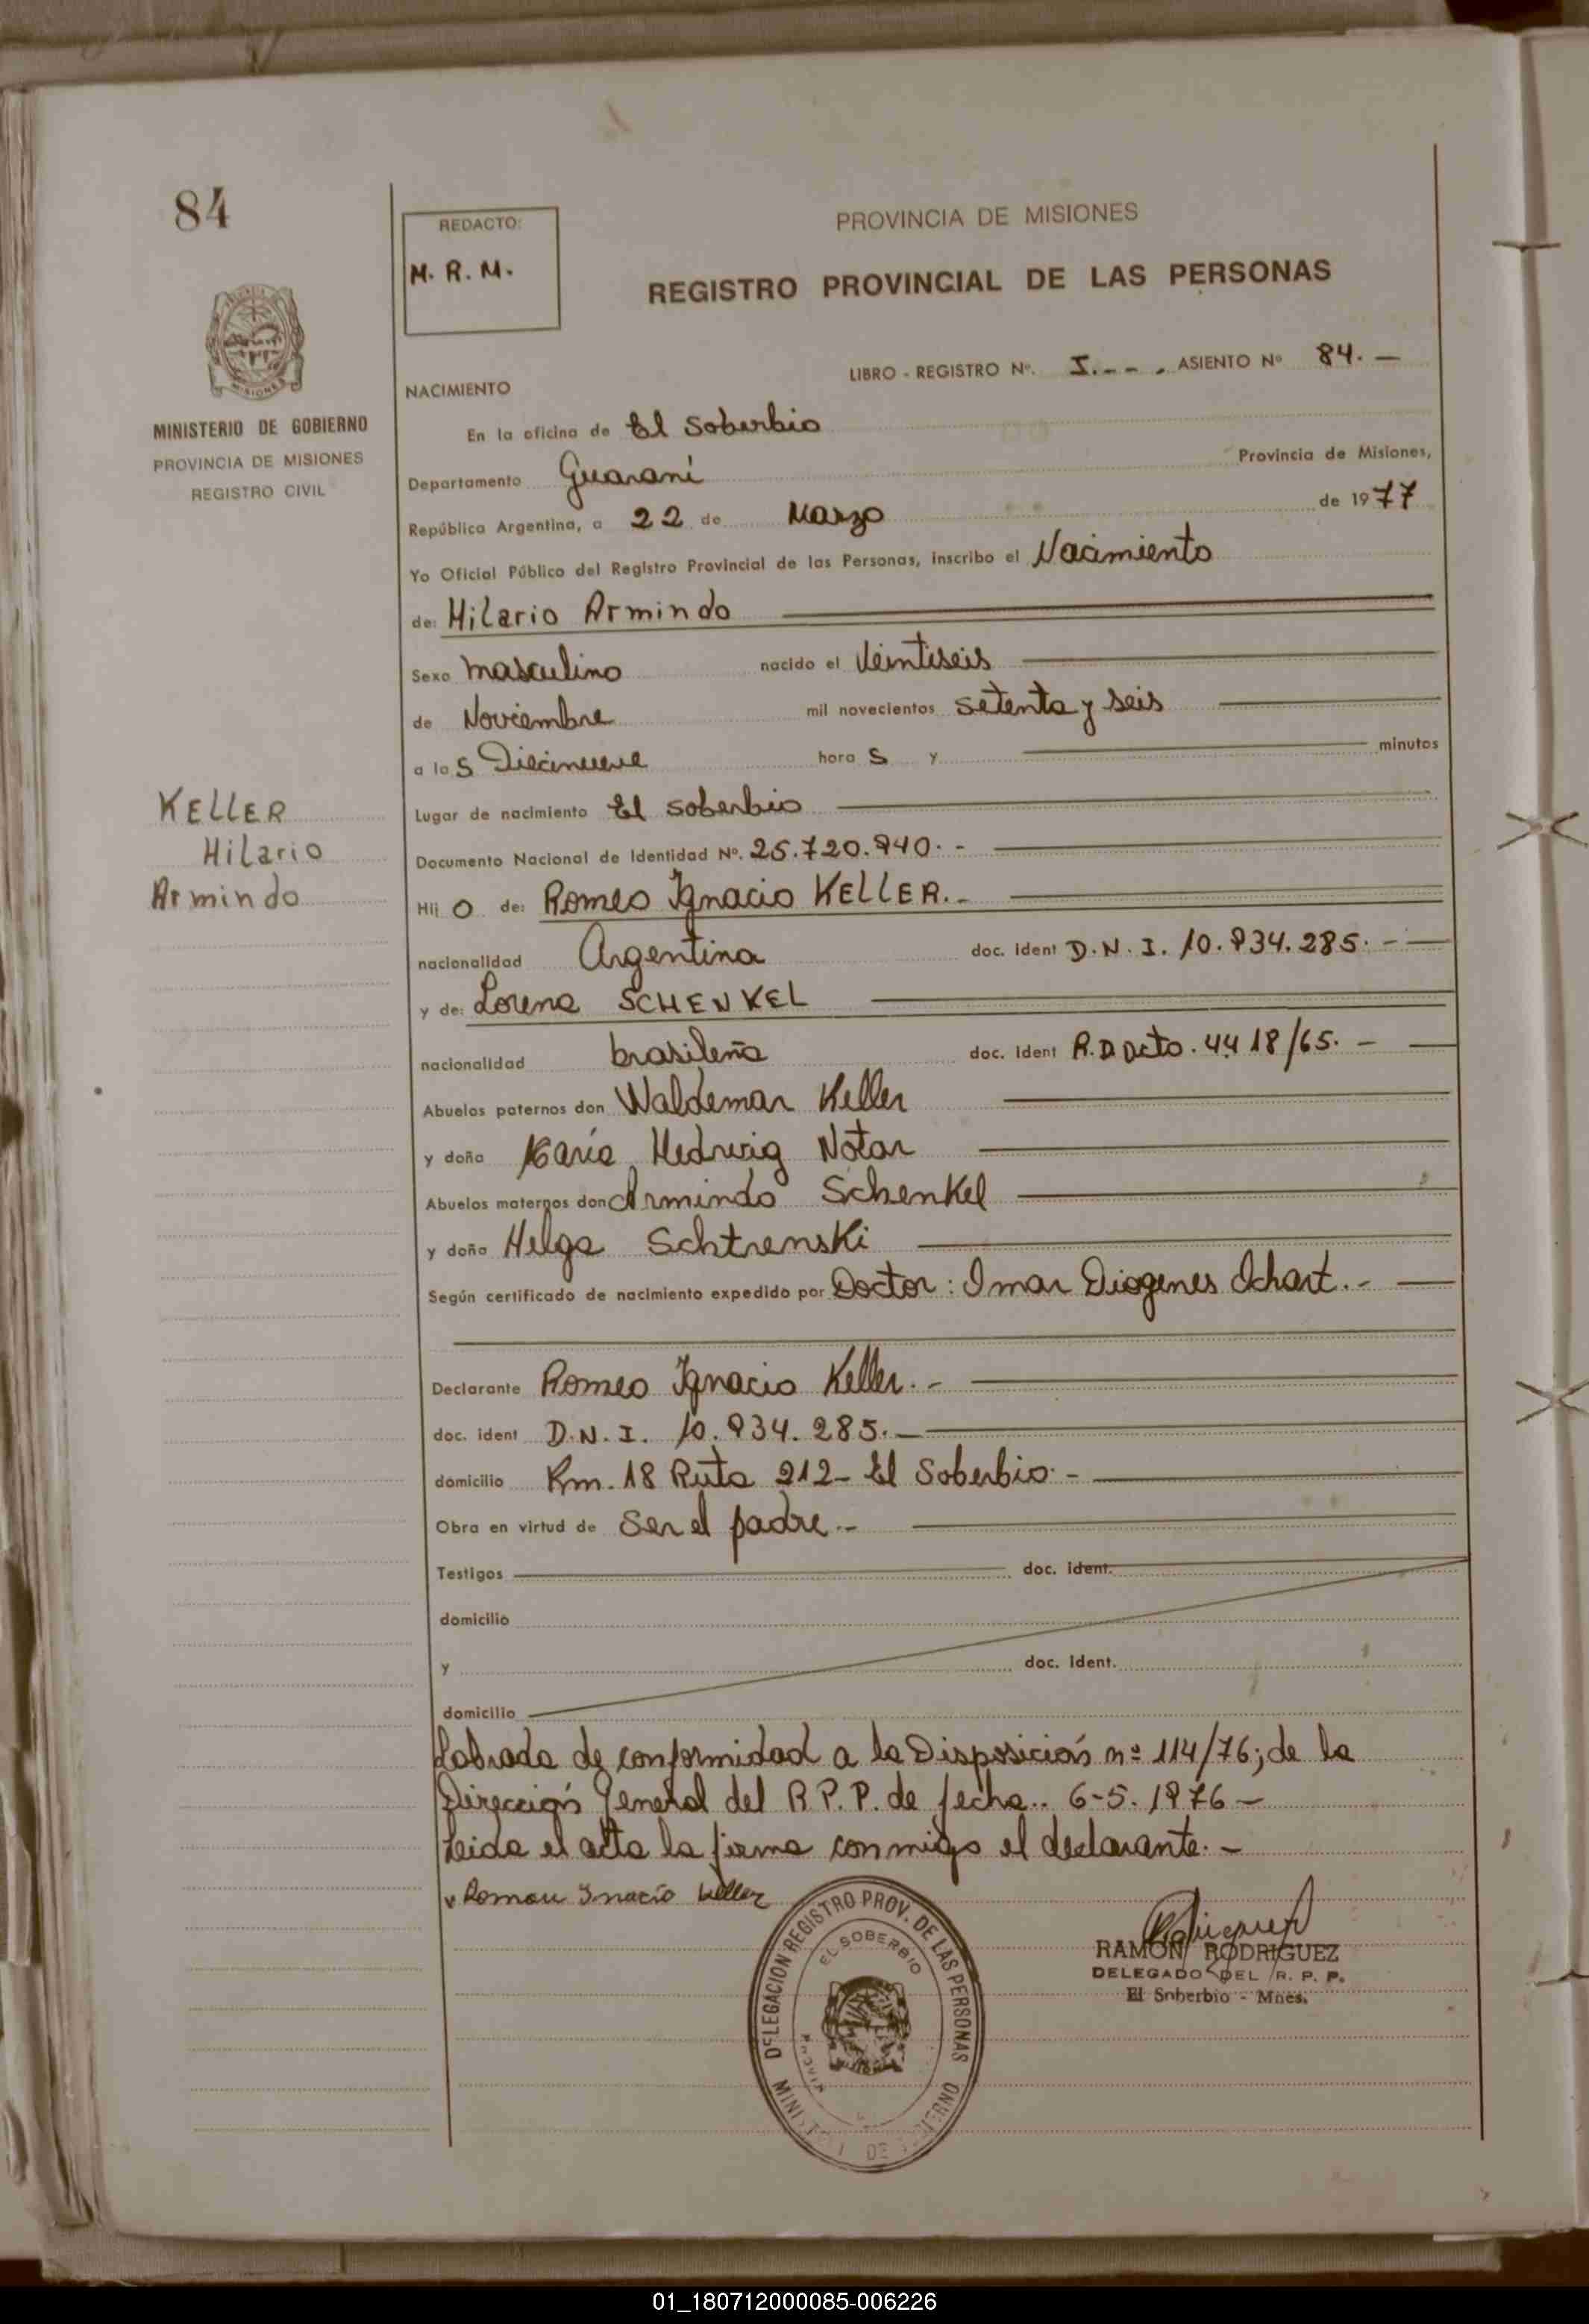 84
REDACTO:
M. R. M.
PROVINCIA DE MISIONES
REGISTRO PROVINCIAL DE LAS PERSONAS
MISIONES
MINISTERIO DE GOBIERNO
PROVINCIA DE MISIONES
REGISTRO CIVIL
LIBRO - REGISTRO Nº. I.-- . ASIENTO Nº 84. —
NACIMIENTO
En la oficina de El Soberbio
Departamento Guaraní Provincia de Misiones,
República Argentina, a 22 de Marzo de 1977
Yo Oficial Público del Registro Provincial de las Personas, inscribo el Nacimiento
de: Hilario Armindo
Sexo masculino nacido el Veintiseis
de Noviembre mil novecientos setenta y seis
a las Diecinueve horas y minutos
KELLER
Hilario
Armindo
Lugar de nacimiento El Soberbio
Documento Nacional de Identidad Nº. 25.720.940. -
Hijo de: Romeo Ignacio KELLER. -
nacionalidad Argentina doc. ident D.N.I. 10.934.285. -
y de: Lorena SCHENKEL
nacionalidad brasileña doc. ident R.D Dcto. 4418/65. -
Abuelos paternos don Waldemar Keller
y doña María Hedwig Notar
Abuelos maternos don Armindo Schenkel
y doña Helga Schtrenski
Según certificado de nacimiento expedido por Doctor: Imar Diogenes Ichart. -
Declarante Romeo Ignacio Keller. -
doc. ident D.N.I. 10.934.285. —
domicilio Km. 18 Ruta 212 - El Soberbio. -
Obra en virtud de Ser el padre. -
Testigos doc. ident.
domicilio
y doc. ident.
domicilio
Labrada de conformidad a la Disposición nº 114/76; de la
Dirección General del R.P.P. de fecha.. 6-5-1976 -
Leida el acta la firma conmigo el declarante. -
Roman Inacio Keller
DELEGACION REGISTRO PROV. DE LAS PERSONAS
EL SOBERBIO
RAMON RODRIGUEZ
DELEGADO DEL R. P. P.
El Soberbio - Mnes.
01_180712000085-006226